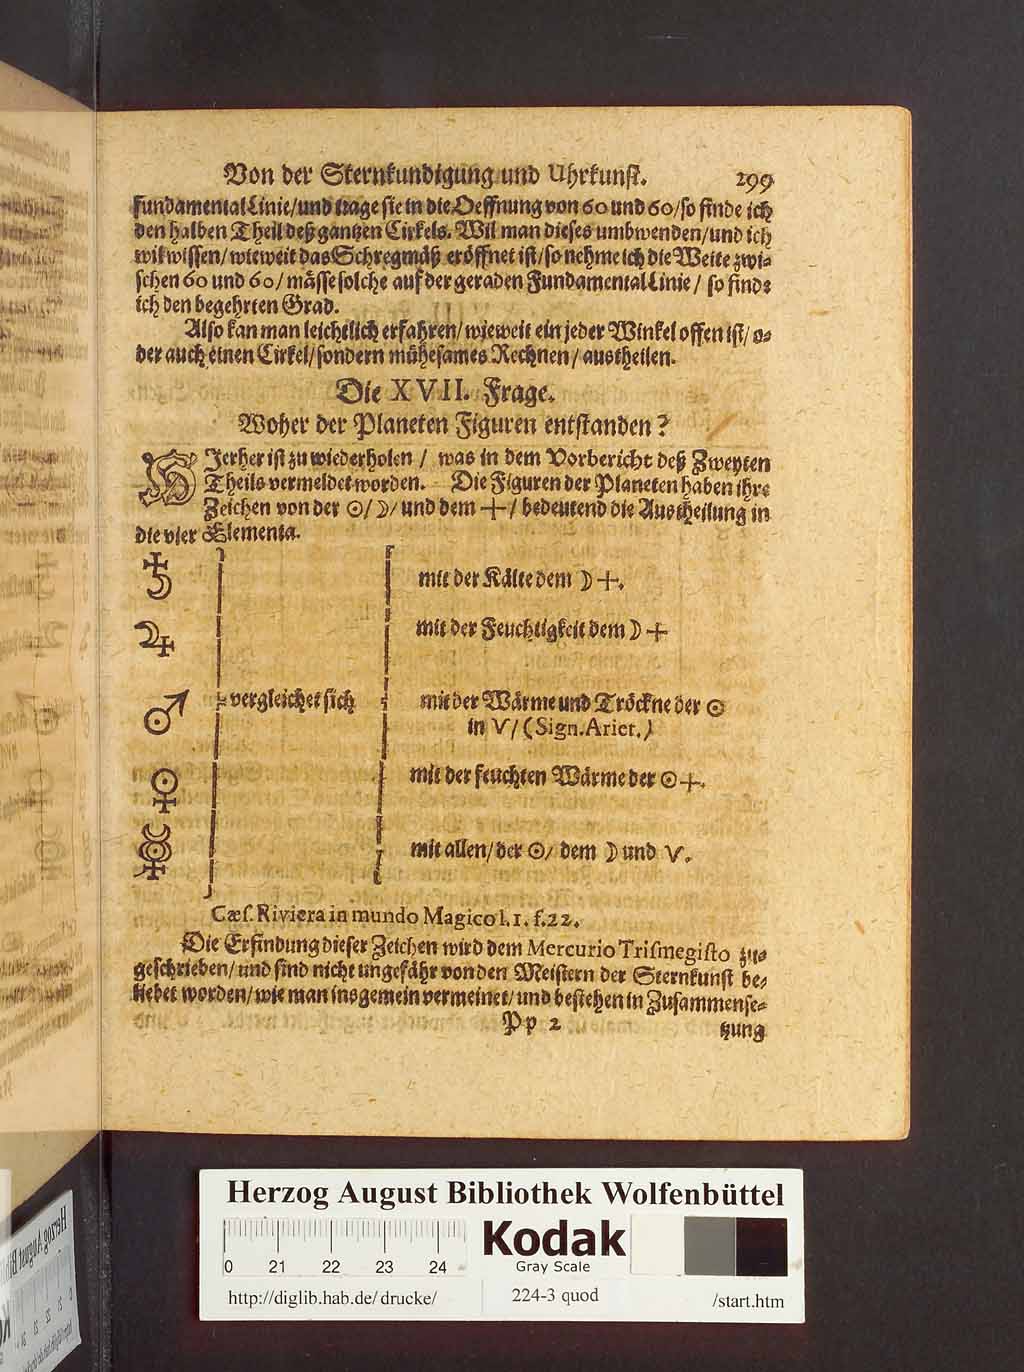 Von der Sternkundigung und Uhrkunst. 299
Fundamental Linie/ und trage sie in die Oeffnung von 60 und 60/ so finde ich
den halben Theil deß gantzen Cirkels. Wil man dieses umbwenden/ und ich
wil wissen/ wie weit das Schregmäß eröffnet ist/ so nehme ich die Weite zwi-
schen 60 und 60/ mässe solche auf der geraden Fundamental Linie/ so finde
ich den begehrten Grad.
Also kan man leichtlich erfahren/ wie weit ein jeder Winkel offen ist/ o-
der auch einen Cirkel/ sondern mühesames Rechnen/ austheilen.
Die XVII. Frage.
Woher der Planeten Figuren entstanden?
HJerher ist zu wiederholen/ was in dem Vorbericht deß Zweyten
Theils vermeldet worden. Die Figuren der Planeten haben ihre
Zeichen von der ☉/ ☽/ und dem +/ bedeutend die Austheilung in
die vier Elementa.
♄ mit der Kälte dem ☽ +.
♃ mit der Feuchtigkeit dem ☽ +
♂ vergleichet sich mit der Wärme und Tröckne der ☉
in V/ (Sign. Ariet.)
♀ mit der feuchten Wärme der ☉ +.
☿ mit allen/ der ☉/ dem ☽ und V.
Cæs. Riviera in mundo Magico l. 1. f. 22.
Die Erfindung dieser Zeichen wird dem Mercurio Trismegisto zu-
geschrieben/ und sind nicht ungefähr von den Meistern der Sternkunst be-
liebet worden/ wie man insgemein vermeinet/ und bestehen in Zusammense-
Pp 2 tzung
Herzog August Bibliothek Wolfenbüttel
0 21 22 23 24
Kodak
Gray Scale
http://diglib.hab.de/drucke/ 224-3 quod /start.htm